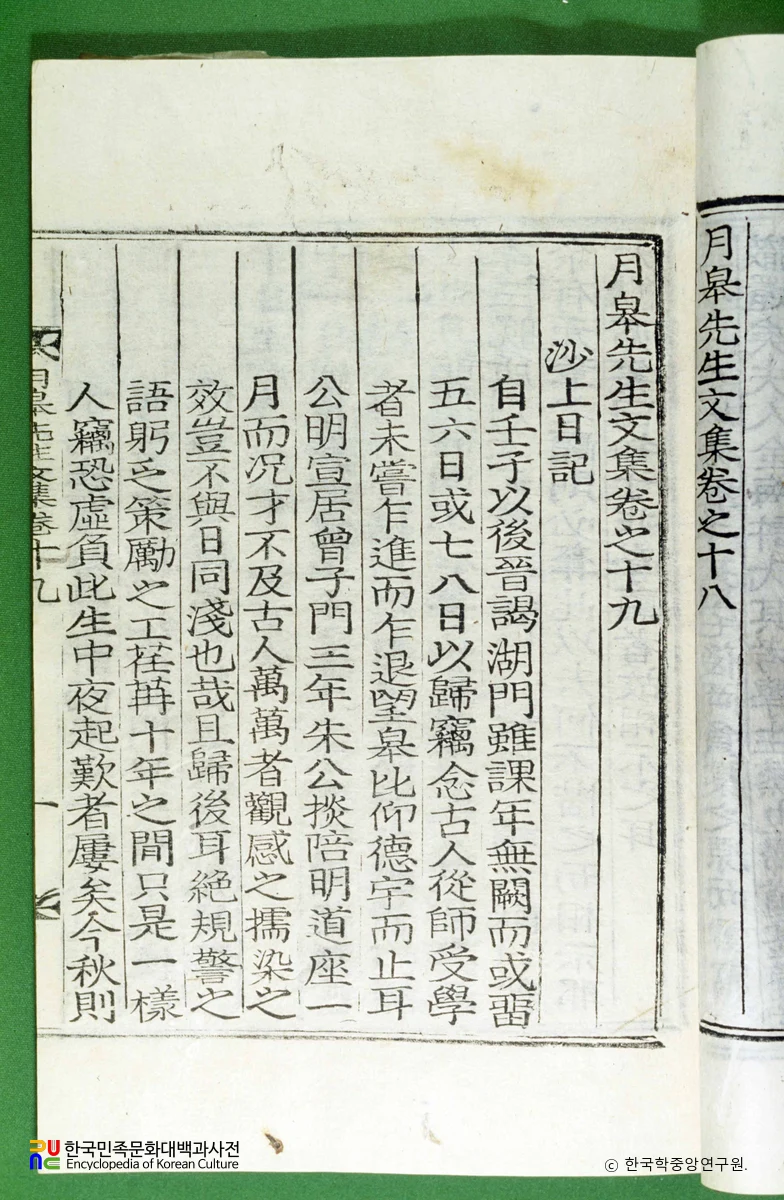 月皐先生文集卷之十八
月皐先生文集卷之十九
沙上日記
自壬子以後晉謁湖門雖課年無闕而或畱
五六日或七八日以歸竊念古人從師受學
者未嘗乍進而乍退望皐比仰德宇而止耳
公明宣居曾子門三年朱公掞陪明道座一
月而况才不及古人萬萬者觀感之擩染之
效豈不與日同淺也哉且歸後耳絶規警之
語躬乏策勵之工荏苒十年之間只是一樣
人竊恐虛負此生中夜起歎者屢矣今秋則
月皐先生文集卷十九 一
한국민족문화대백과사전
Encyclopedia of Korean Culture
ⓒ 한국학중앙연구원.